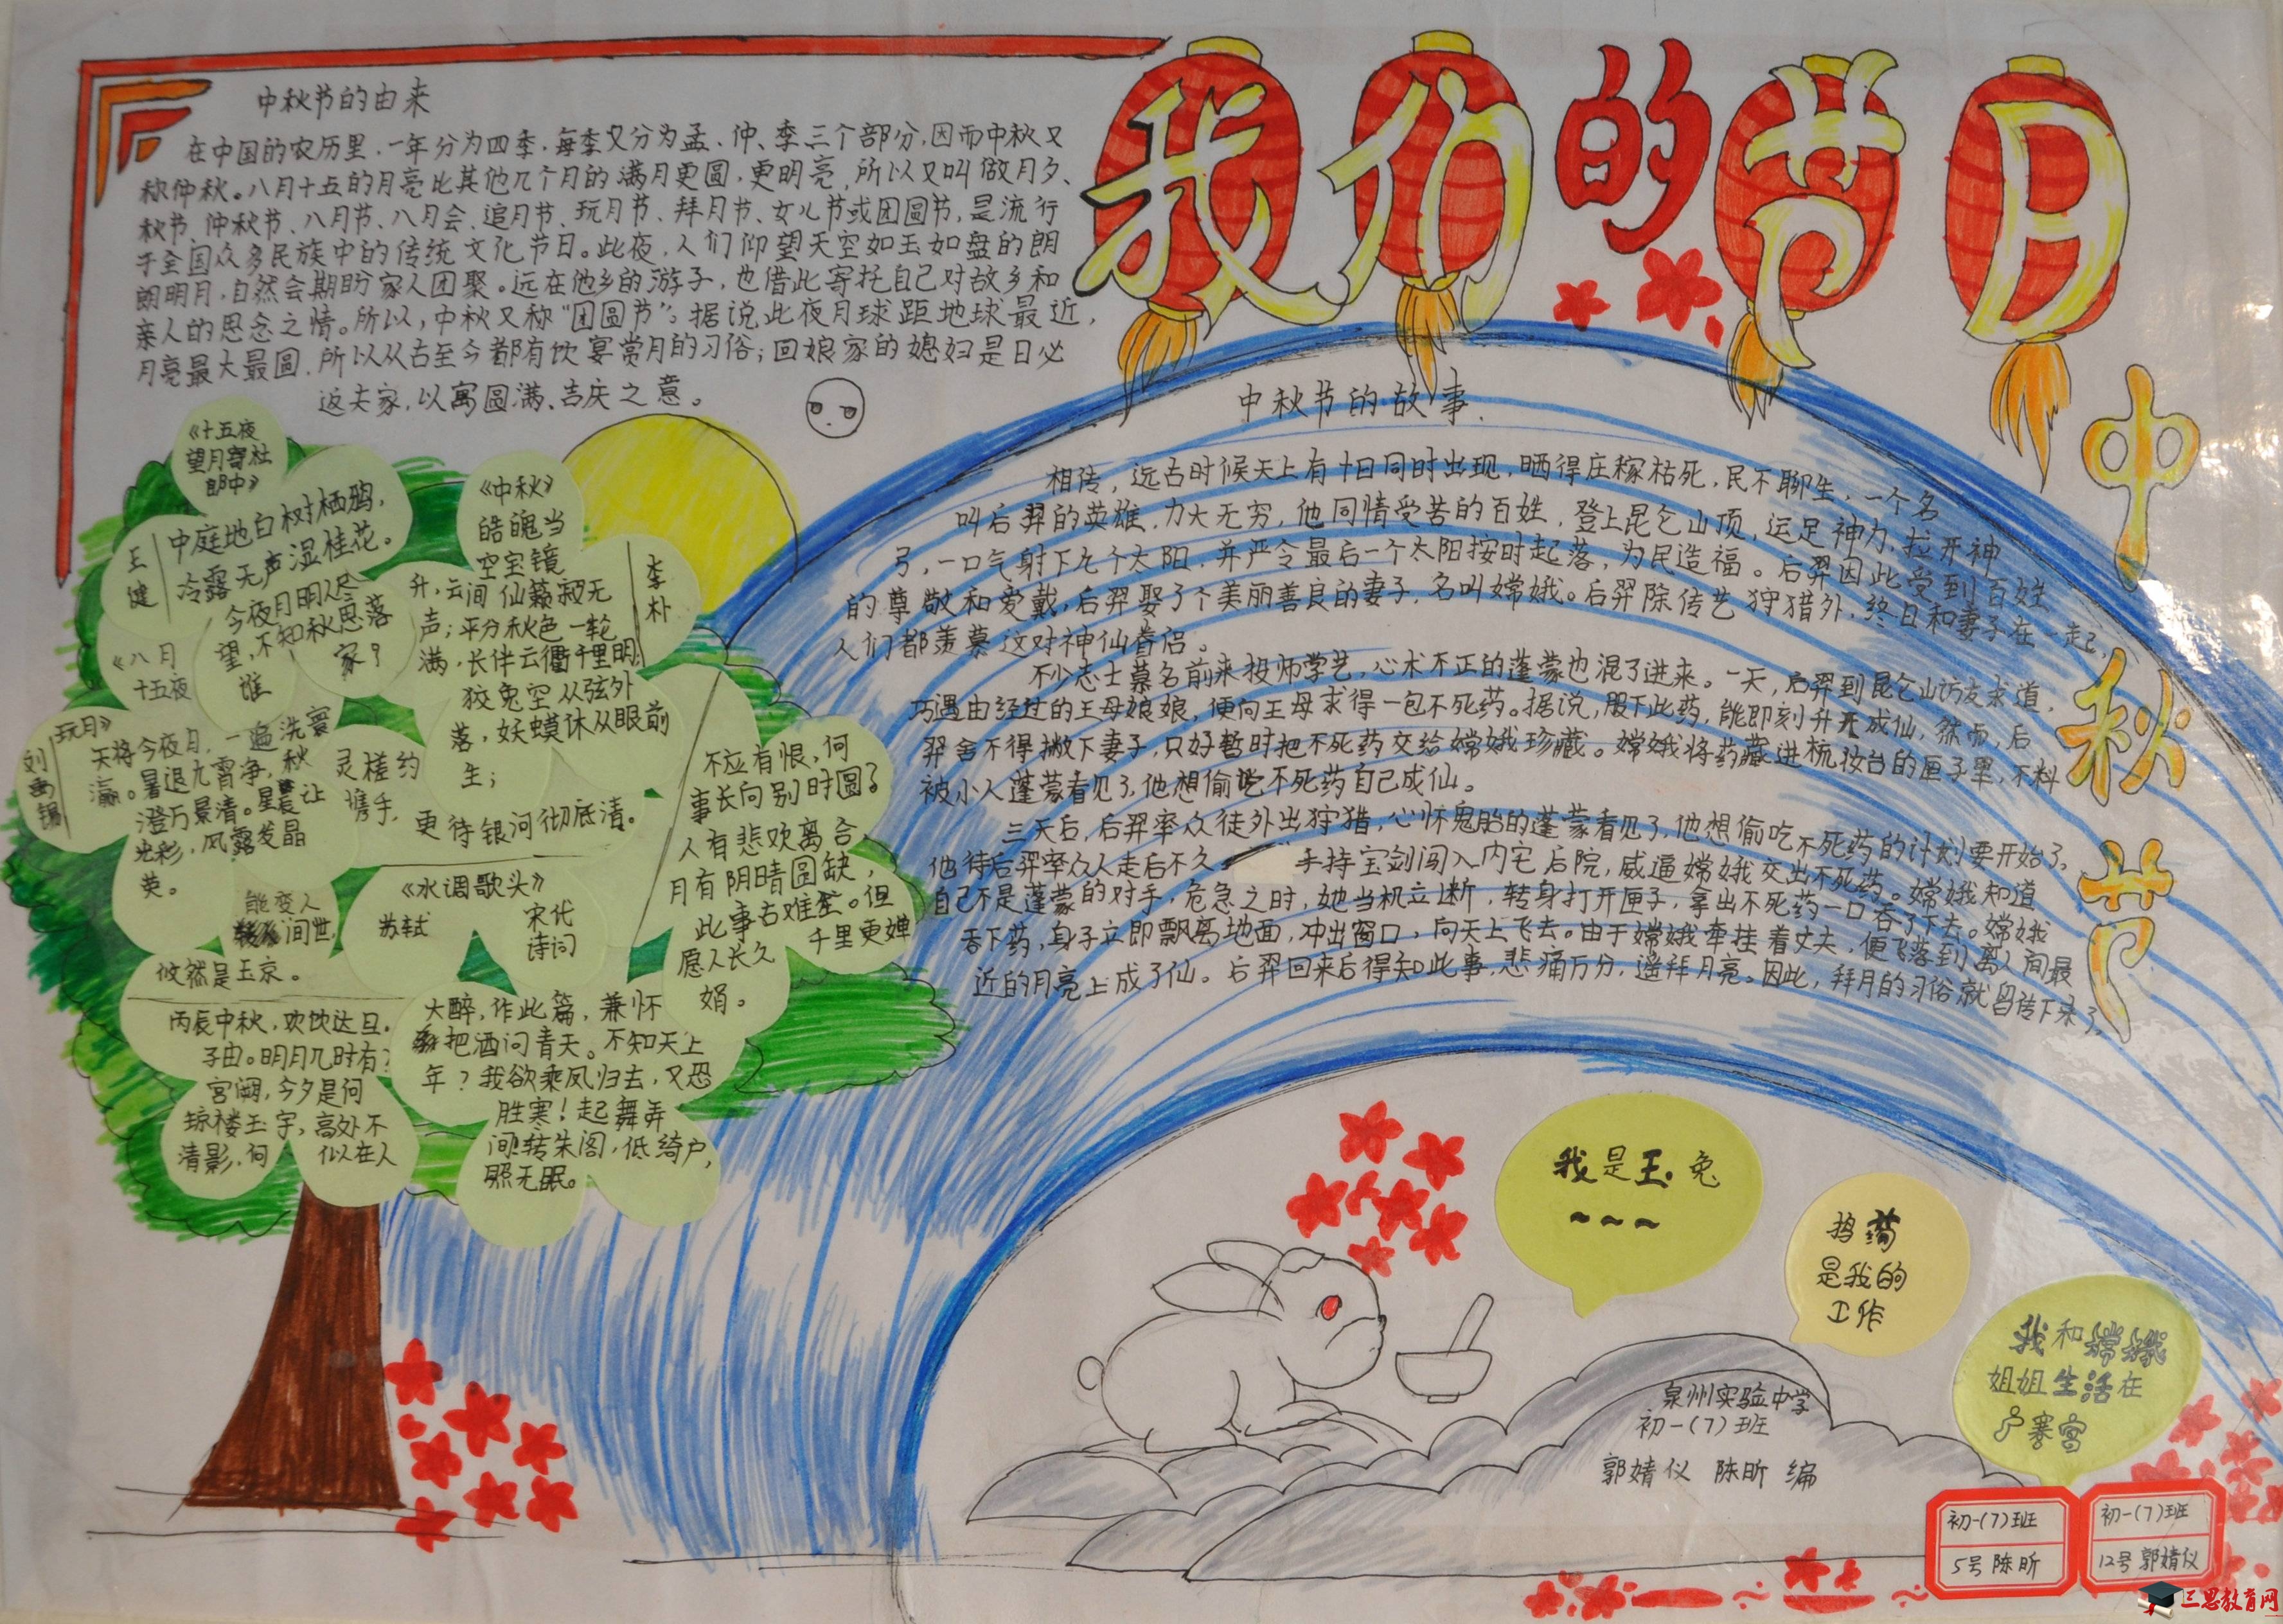 我们的节日
中秋节
中秋节的由来
在中国的农历里,一年分为四季,每季又分为孟、仲、季三个部分,因而中秋又
称仲秋。八月十五的月亮比其他几个月的满月更圆,更明亮,所以又叫做月夕、
秋节、仲秋节、八月节、八月会、追月节、玩月节、拜月节、女儿节或团圆节,是流行
于全国众多民族中的传统文化节日。此夜,人们仰望天空如玉如盘的朗
朗明月,自然会期盼家人团聚。远在他乡的游子,也借此寄托自己对故乡和
亲人的思念之情。所以,中秋又称“团圆节”。据说此夜月球距地球最近,
月亮最大最圆,所以从古至今都有饮宴赏月的习俗;回娘家的媳妇是日必
返夫家,以寓圆满、吉庆之意。
中秋节的故事.
相传,远古时候天上有十日同时出现,晒得庄稼枯死,民不聊生,一个名
叫后羿的英雄,力大无穷,他同情受苦的百姓,登上昆仑山顶,运足神力,拉开神
弓,一口气射下九个太阳,并严令最后一个太阳按时起落,为民造福。后羿因此受到百姓
的尊敬和爱戴,后羿娶了个美丽善良的妻子,名叫嫦娥。后羿除传艺狩猎外,终日和妻子在一起,
人们都羡慕这对神仙眷侣。
不少志士慕名前来投师学艺,心术不正的蓬蒙也混了进来。一天,后羿到昆仑山访友求道,
巧遇由经过的王母娘娘,便向王母求得一包不死药。据说,服下此药,能即刻升天成仙,然而,后
羿舍不得撇下妻子,只好暂时把不死药交给嫦娥珍藏。嫦娥将药藏进梳妆台的匣子里,不料
被小人蓬蒙看见了,他想偷吃不死药自己成仙。
三天后,后羿率众徒外出狩猎,心怀鬼胎的蓬蒙看见了,他想偷吃不死药的计划要开始了。
他待后羿率众人走后不久 手持宝剑闯入内宅后院,威逼嫦娥交出不死药。嫦娥知道
自己不是蓬蒙的对手,危急之时,她当机立断,转身打开匣子,拿出不死药一口吞了下去。嫦娥
吞下药,身子立即飘离地面,冲出窗口,向天上飞去。由于嫦娥牵挂着丈夫,便飞落到离人间最
近的月亮上成了仙。后羿回来后得知此事,悲痛万分,遥拜月亮。因此,拜月的习俗就留传下来了。
《十五夜
望月寄杜
郎中》
王
健
中庭地白树栖鸦,
冷露无声湿桂花。
今夜月明人尽
望,不知秋思落
谁
家?
《中秋》
李
朴
皓魄当
空宝镜
升,云间仙籁寂无
声;平分秋色一轮
满,长伴云衢千里明;
狡兔空从弦外
落,妖蟆休从眼前
生;
灵槎约
携手,
更待银河彻底清。
《八月
十五夜
玩月》
刘
禹
锡
天将今夜月,一遍洗寰
瀛。暑退九霄净,秋
澄万景清。星晨让
光彩,风露发晶
英。
能变人
间世,
攸然是玉京。
《水调歌头》
苏轼
宋代
诗词
丙辰中秋,欢饮达旦,
大醉,作此篇,兼怀
子由。明月几时有?
把酒问青天。不知天上
宫阙,今夕是何
年?我欲乘风归去,又恐
琼楼玉宇,高处不
胜寒!起舞弄
清影,何
似在人
间!转朱阁,低绮户,
照无眠。
不应有恨,何
事长向别时圆?
人有悲欢离合,
月有阴晴圆缺,
此事古难全。但
愿人长久
千里更婵
娟。
我是玉兔
~~~
捣药
是我的
工作
我和嫦娥
姐姐生活在
广寒宫
泉州实验中学
初一(7)班
郭婧仪 陈昕 编
初一(7)班
5号 陈昕
初一(7)班
12号 郭婧仪
三思教育网